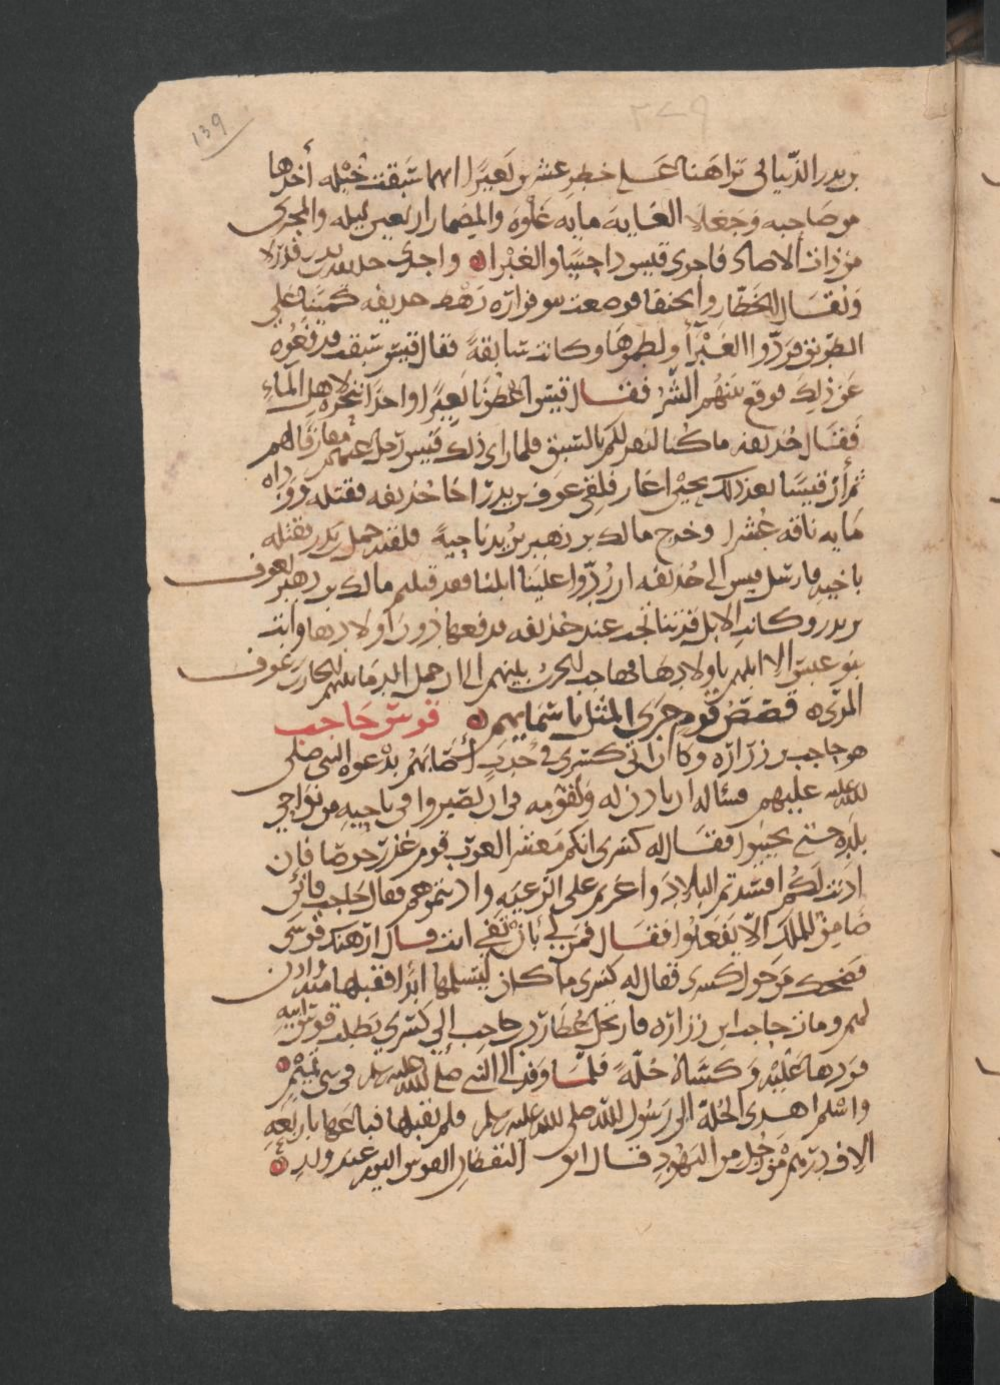 139
بن بدر الذبياني تراهنا على خطر عشرين بعيرا ايهما سبقت خيله أخذها
من صاحبه وجعلا الغاية مايه غلوه والمضمار اربعين ليله والمجرى
من ذات الاصاد فاجرى قيس داحسا والغبرا واجرى حذيفه بن بدر
ويقال الخطار والحنفا فوضعت بنو فزاره رهط حذيفه كمينا على
الطريق فردوا الغبرا ولطموها وكانت سابقة فقال قيس سبقت فدفعوه
عن ذلك فوقع بينهم الشر فقال قيس اعطونا بعيرا واحدا ننحره لاهل الماء
فقال حذيفه ما كنا لنقر لكم بالسبق فلما راى ذلك قيس رحل عنهم مفارقا لهم
ثم أن قيسا بعد ذلك بحين اغار فلقى عوف بن بدر اخا حذيفه فقتله ووداه
مايه ناقه عشرا وخرج مالك بن زهير يريد ناحية فلقيه حمل بن بدر فقتله
باخيه فارسل قيس الى حذيفه ان ردوا علينا ابلنا فقد قتلتم مالك بن زهير بعوف
بن بدر وكانت الابل قد تناتجت عند حذيفه فدفعها دون اولادها وابت
بنو عبس الا ابلهم باولادها فهاجت الحرب بينهم الى ان حمل الدما بينهم الحارث بن عوف
المرى قصص قوم جرى المثل باسمايهم قوس حاجب
هو حاجب بن زراره وكان اتى كسرى في جدب أصابهم بدعوه النبي صلى
الله عليه عليهم فساله ان ياذن له ولقومه في ان يصيروا في ناحيه من نواحي
بلده حتى يحيوا فقال له كسرى انكم معشر العرب قوم غدر حرصا فان
اذنت لكم افسدتم البلاد واغرتم على الرعيه واذيتموهم فقال حاجب فاني
ضامن للملك الا يفعلوا فقال فمن لي بان تفي انت قال ارهنك قوسى
فضحك من حول كسرى فقال له كسرى ما كان ليسلمها ابدا فقبلها منه واذن
لهم ومات حاجب ابن زراره فارتحل عطارد بن حاجب الى كسرى يطلب قوس ابيه
فردها عليه وكساه حلة فلما وفد الى النبي صلى الله عليه وسلم في بني تميم
واسلم اهدى الحلة الى رسول الله صلى الله عليه وسلم فلم يقبلها فباعها باربعة
الاف درهم من رجل من اليهود قال ابو اليقظان القوس اليوم عند ولد